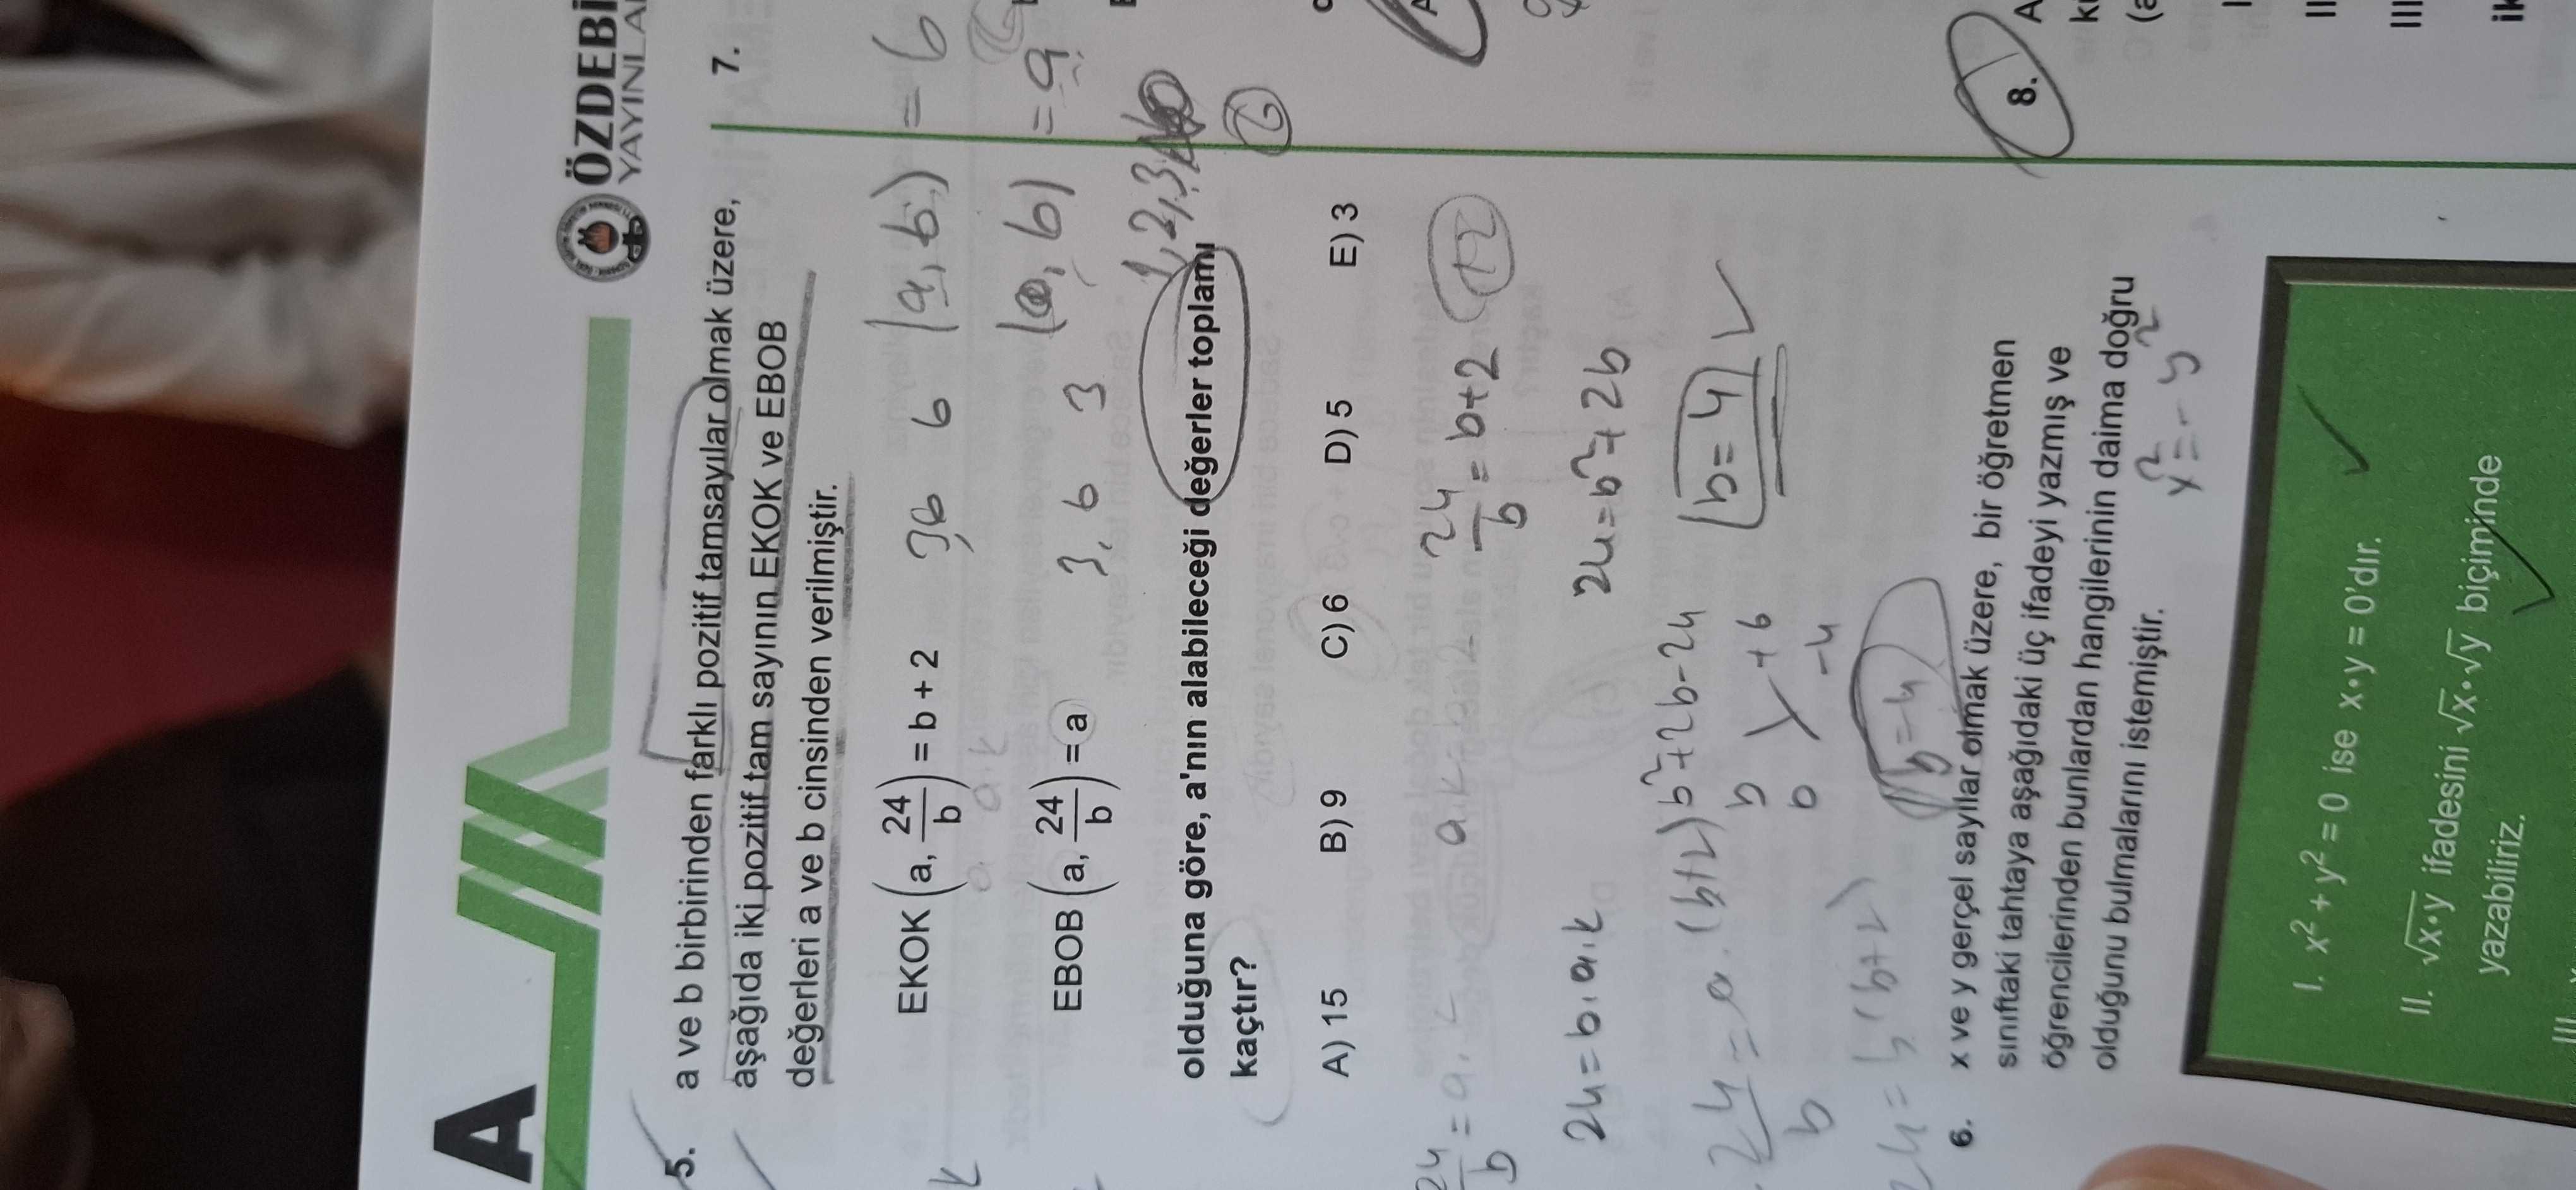 A
ÖZDEBİ
YAYINLA
5. a ve b birbirinden farklı pozitif tamsayılar olmak üzere,
aşağıda iki pozitif tam sayının EKOK ve EBOB
değerleri a ve b cinsinden verilmiştir.
EKOK (a, 24/b) = b + 2
36 6 (a, b) = 6
EBOB (a, 24/b) = a
3, 6 3 (a, b) = a
1, 2, 3
olduğuna göre, a'nın alabileceği değerler toplamı
kaçtır?
6
A) 15 B) 9 C) 6 D) 5 E) 3
24/b = a.
24/b = b+2
12
24 = b.a.k
24 = b²+2b
24/b = a.(b+2)
b²+2b-24
b +6
b -4
b=4
24 = b(b+2)
b=4
6. x ve y gerçel sayılar olmak üzere, bir öğretmen
sınıftaki tahtaya aşağıdaki üç ifadeyi yazmış ve
öğrencilerinden bunlardan hangilerinin daima doğru
olduğunu bulmalarını istemiştir.
x² = -y²
I. x² + y² = 0 ise x•y = 0'dır.
II. √x•y ifadesini √x•√y biçiminde
yazabiliriz.
III.
7.
8. A
(a
I
II
III